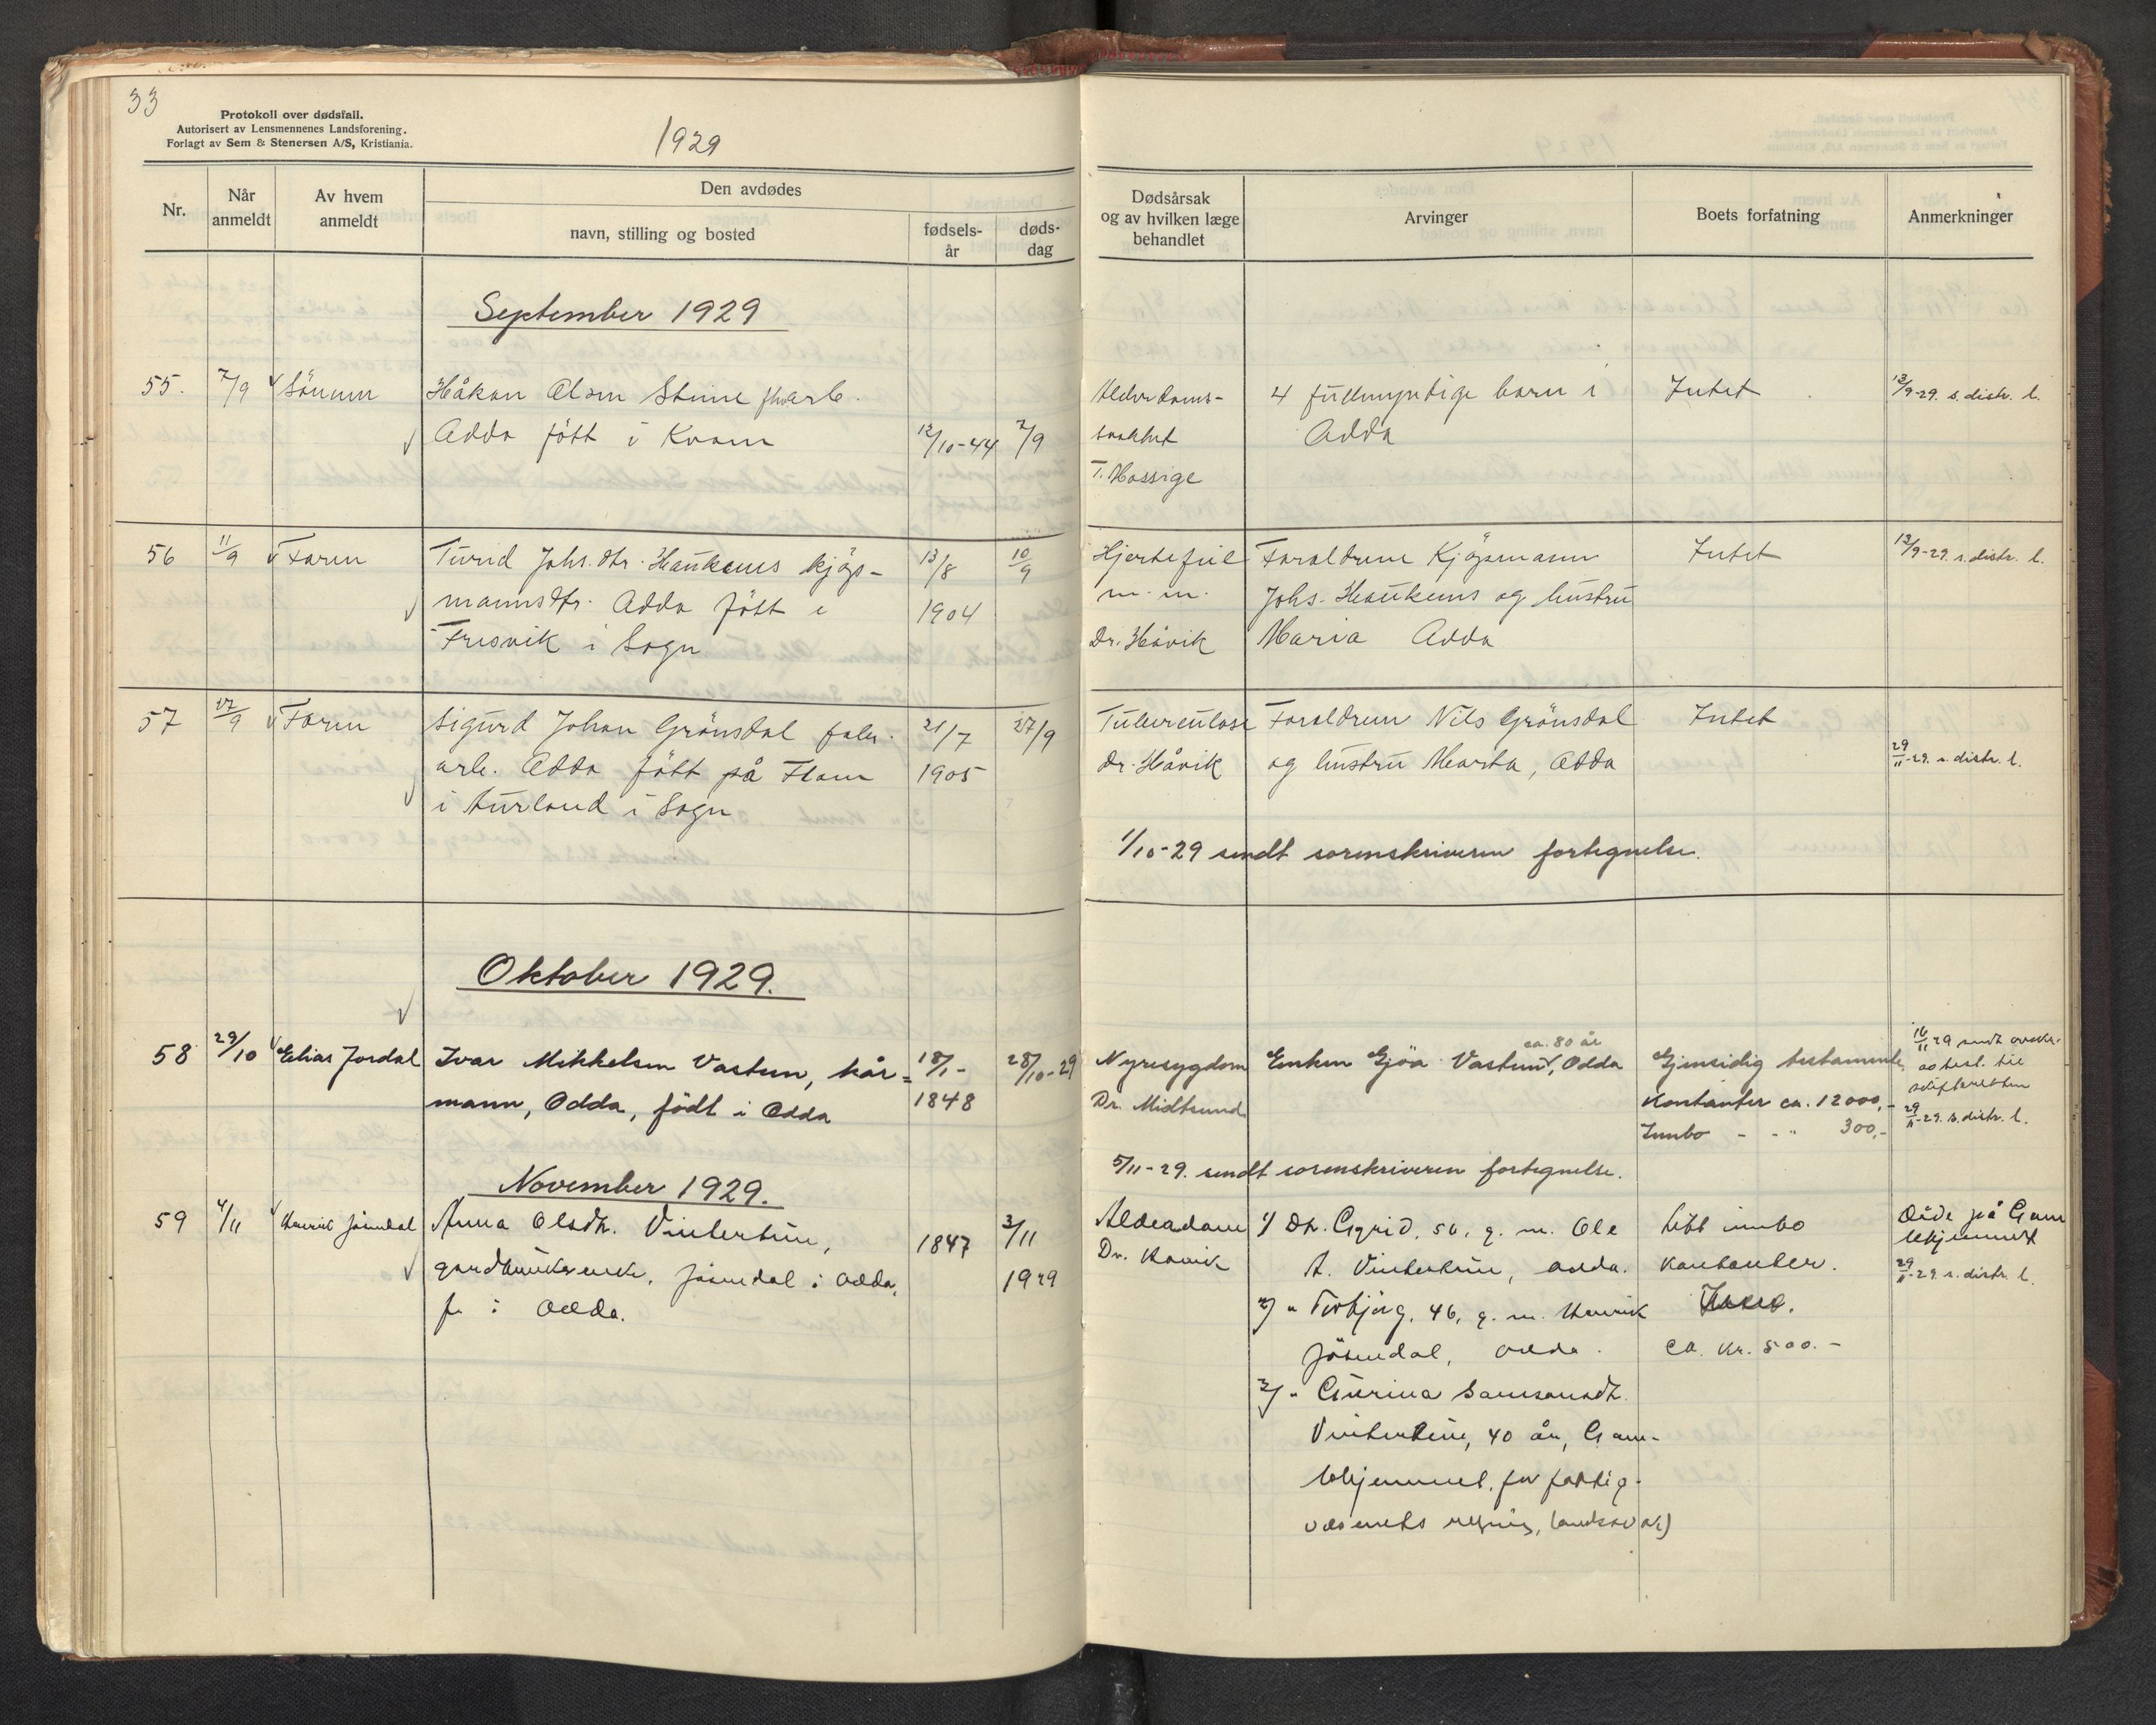 33
Protokoll over dødsfall.
Autorisert av Lensmennenes Landsforening.
Forlagt av Sem & Stenersen A/S, Kristiania.
1929
Nr.
Når anmeldt
Av hvem anmeldt
Den avdødes
navn, stilling og bosted
fødsels-år
døds-dag
Dødsårsak og av hvilken læge behandlet
Arvinger
Boets forfatning
Anmerkninger
September 1929
55. 7/9 Sönnen Håkon Olsen Steine arb. Alderdoms- 4 fullmyndige born i Intet 12/9-29. s. distr. l.
Odda fött i Kvam 12/10-44 7/9 svakhet Odda
T. Mossige
56 11/9 Faren Turid Johs.dtr. Haukenes kjöp- 13/8 10/9 Hjertefeil Foreldrene Kjöpmann Intet 12/9-29. s. distr. l.
mannsdtr. Odda fött i 1904 m.m. Johs. Haukenes og hustru
Fresvik i Sogn Dr. Håvik Maria Odda
57 27/9 Faren Sigurd Johan Grönsdal fabr. 21/7 27/9 Tuberculose Foreldrene Nils Grönsdal Intet
arb. Odda fött på Flam 1905 Dr. Håvik og hustru Marta, Odda 29/11-29. s. distr. l.
i Aurland i Sogn
1/10-29 sendt sorenskriveren fortegnelse.
Oktober 1929.
58 29/10 Elias Jordal Ivar Mikkelsen Vastun, kår= 18/1- 28/10-29 Nyresygdom Enken Gjöa Vastun, ca. 80 år Odda Gjensidig testamente, 16/11 29 sendt
mann, Odda, födt i Odda 1848 Dr. Midtsund Kontanter ca. 12000,- test. til
Innbo - - " 300,- skifteretten
29/11-29. s. distr. l.
5/11-29. sendt sorenskriveren fortegnelse.
November 1929.
59 4/11 Henrik Jösendal Anna Olsdtr. Vintertun, 1847 3/11 Alderdom 1/ Dtr. Sigrid, 50, g. m. Ole Litt innbo Döde på Gam
gardbrukerenke, Jösendal i Odda, 1929 Dr. Haavik A. Vintertun, Odda. Kontanter. lehjemmet
f. i Odda. 2/ " Torbjörg, 46, g. m. Henrik 29/11-29. s. distr. l.
Jösendal, Odda. ca. kr. 500.-
3/ " Gurina Samsonsdtr.
Vintertun, 40 år, Gam-
lehjemmet, for fattig-
væsenets regning, (andssvak)